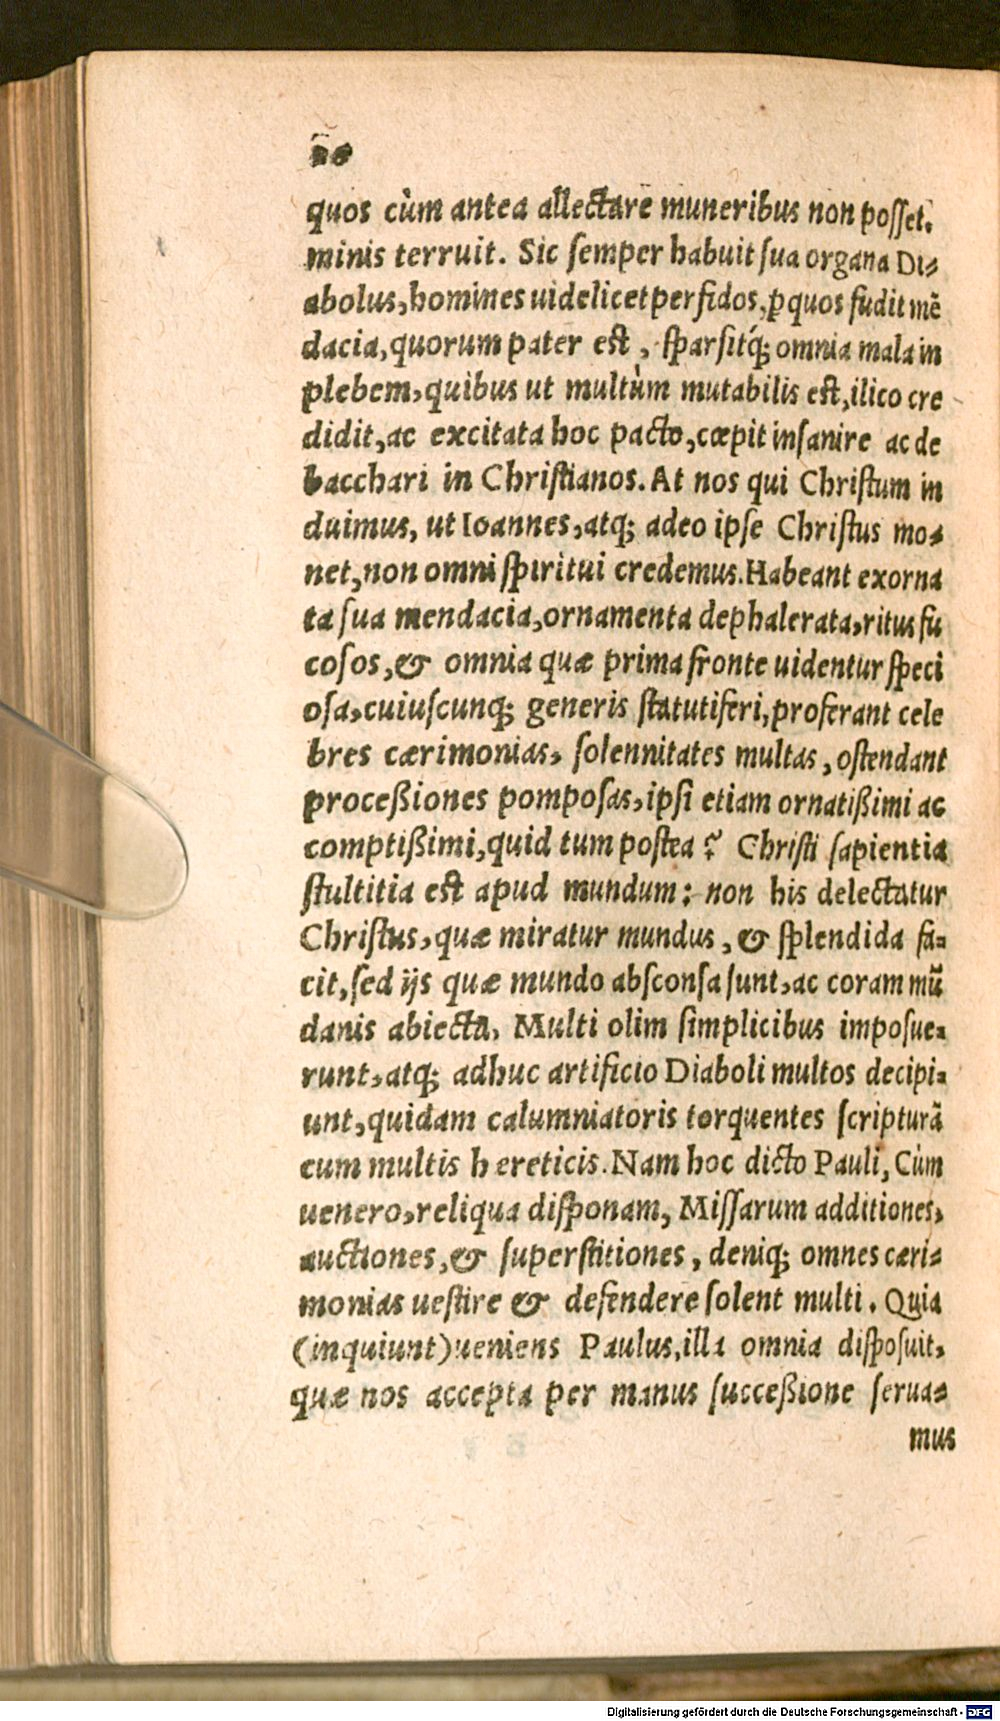 quos cùm antea allectare muneribus non posset,
minis terruit. Sic semper habuit sua organa Di-
abolus, homines uidelicet perfidos, ꝑ quos fudit mẽ
dacia, quorum pater est, sparsitq́; omnia mala in
plebem, quibus ut multùm mutabilis est, ilico cre
didit, ac excitata hoc pacto, cœpit insanire ac de
bacchari in Christianos. At nos qui Christum in
duimus, ut Ioannes, atq; adeo ipse Christus mo-
net, non omni spiritui credemus. Habeant exorna
ta sua mendacia, ornamenta dephalerata, ritus fu
cosos, & omnia quæ prima fronte uidentur speci
osa, cuiuscunq; generis statutiferi, proferant cele
bres cærimonias, solennitates multas, ostendant
proceßiones pomposas, ipsi etiam ornatißimi ac
comptißimi, quid tum postea? Christi sapientia
stultitia est apud mundum: non his delectatur
Christus, quæ miratur mundus, & splendida fa-
cit, sed ijs quæ mundo absconsa sunt, ac coram mũ
danis abiecta, Multi olim simplicibus imposue-
runt, atq; adhuc artificio Diaboli multos decipi-
unt, quidam calumniatoris torquentes scripturã
cum multis hereticis. Nam hoc dicto Pauli, Cùm
uenero, reliqua disponam, Missarum additiones,
auctiones, & superstitiones, deniq; omnes cæri-
monias uestire & defendere solent multi. Quia
(inquiunt) ueniens Paulus, illa omnia disposuit,
quæ nos accepta per manus succeßione serua-
mus
Digitalisierung gefördert durch die Deutsche Forschungsgemeinschaft - DFG